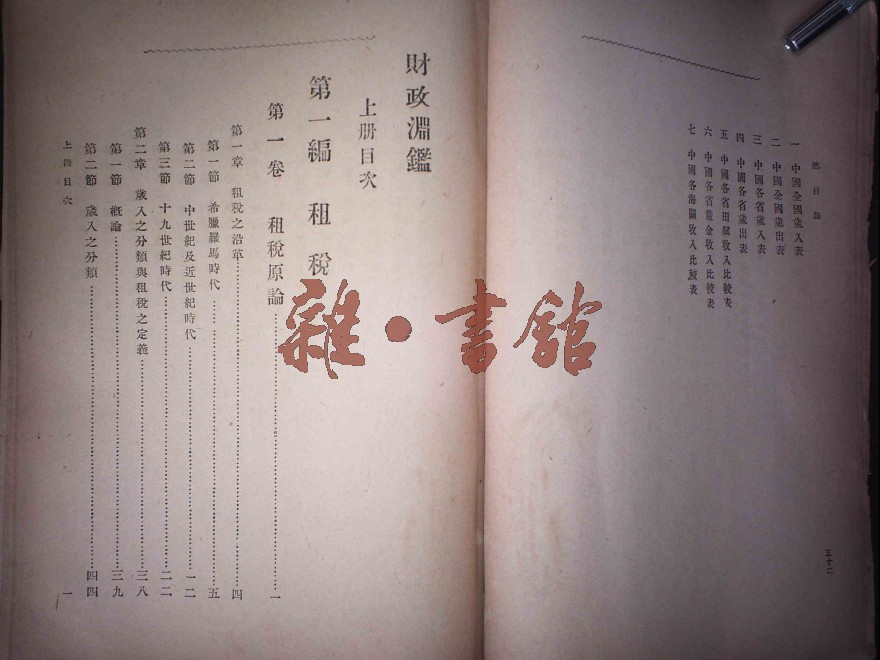 總目錄
一 中國全國歲入表
二 中國全國歲出表
三 中國各省歲入表
四 中國各省歲出表
五 中國各省田賦收入比較表
六 中國各省釐金收入比較表
七 中國各海關收入比較表
五十二
財政淵鑑
上册目次
第一編 租稅
第一卷 租稅原論……一
第一章 租稅之沿革……四
第一節 希臘羅馬時代……五
第二節 中世紀及近世紀時代……一二
第三節 十九世紀時代……二二
第二章 歲入之分類與租稅之定義……三八
第一節 概論……三九
第二節 歲入之分類……四四
上册目次
一
雜·書館